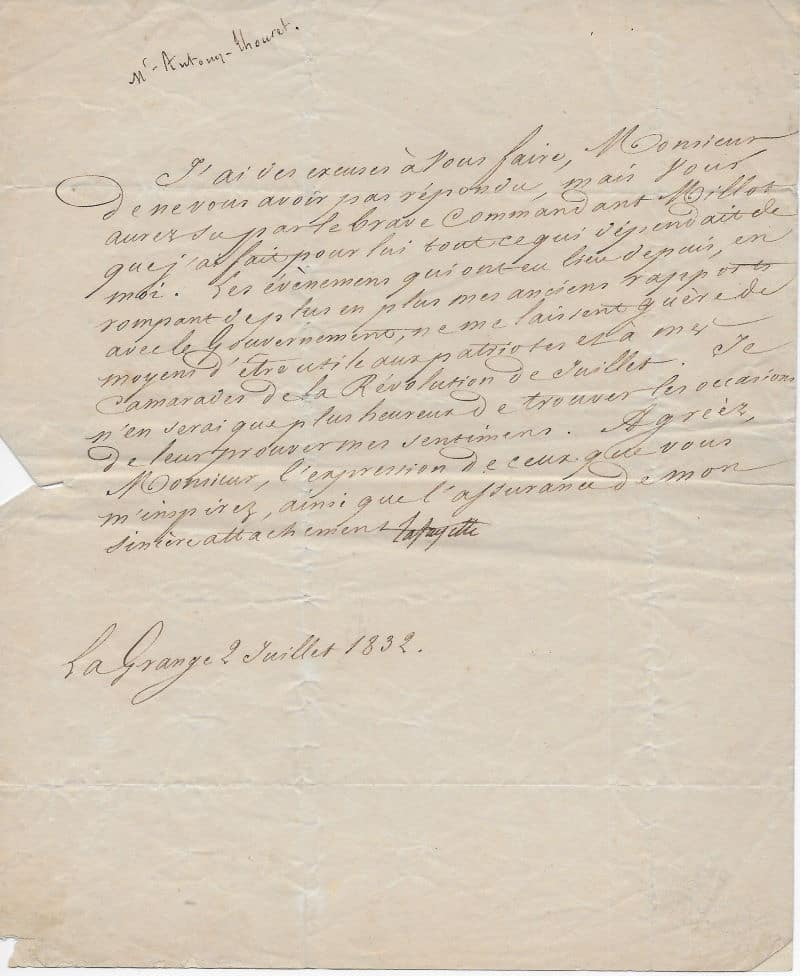 Mr. Antony-Thouret.
J'ai des excuses à vous faire, Monsieur
de ne vous avoir pas répondu, mais vous
aurez su par le brave Commandant Millot
que j'ai fait pour lui tout ce qui dépendait de
moi. Les évènemens qui ont eu lieu depuis, en
rompant de plus en plus mes anciens rapports
avec le Gouvernement, ne me laissent guère de
moyens d'être utile aux patriotes et à mes
Camarades de la Révolution de Juillet. Je
n'en serai que plus heureux de trouver les occasions
de leur prouver mes sentimens. Agréez,
Monsieur, l'expression de ceux que vous
m'inspirez, ainsi que l'assurance de mon
sincère attachement Lafayette
La Grange 2 Juillet 1832.